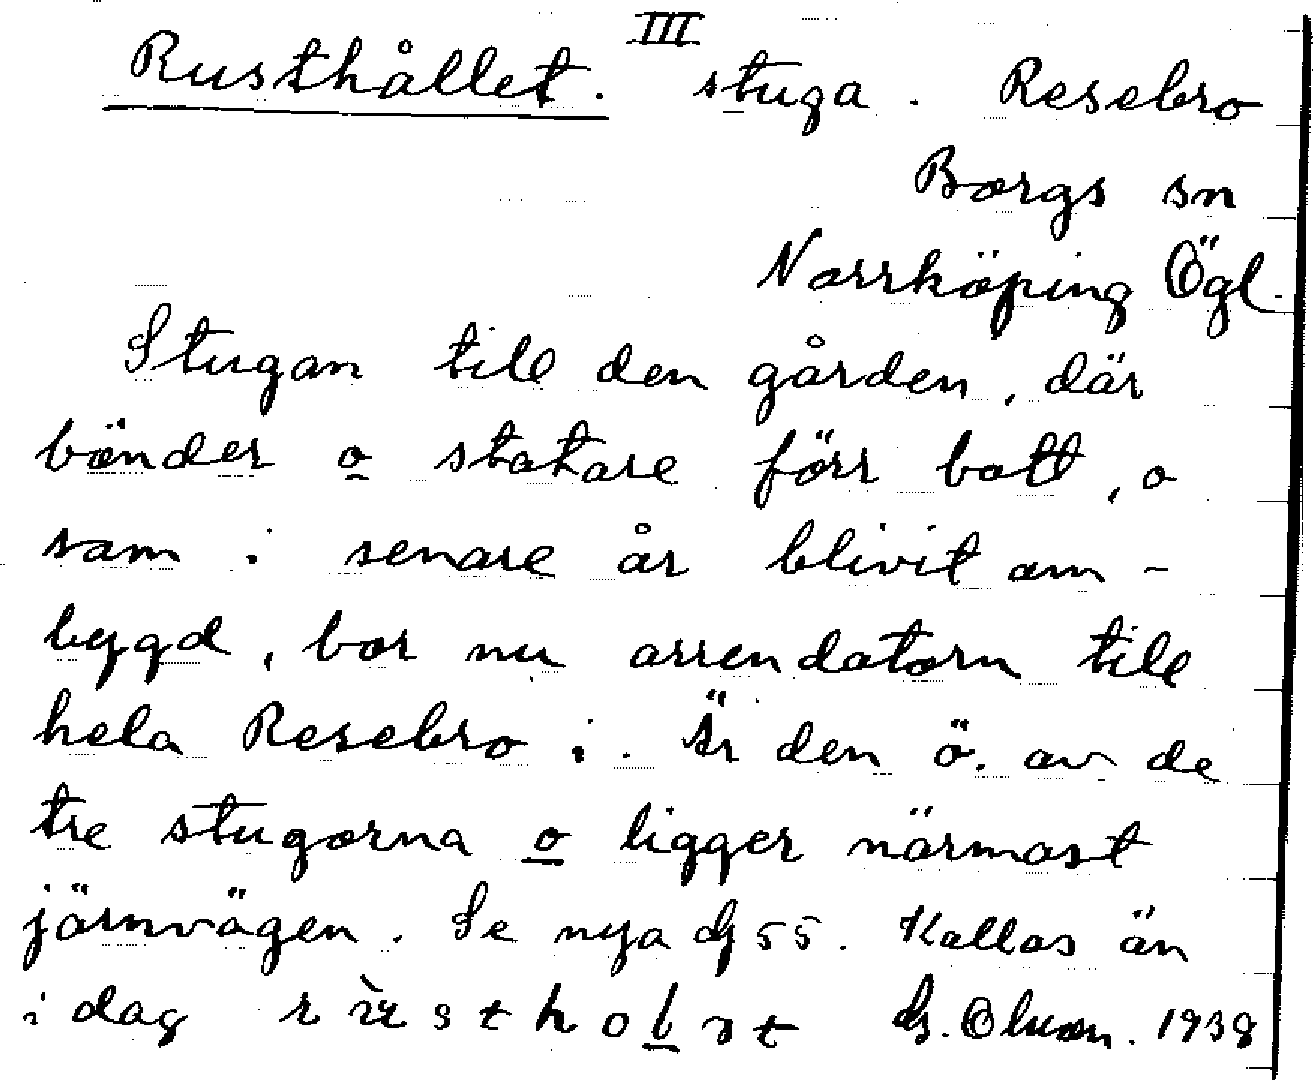 III
Rusthållet. stuga. Resebro
Borgs sn
Norrköping Ögl.
Stugan till den gården, där
bönder o statare förr bott, o
som i senare år blivit om-
bygd, bor nu arrendatorn till
hela Resebro i. Är den ö. av de
tre stugorna o ligger närmast
järnvägen. Se nya 55. Kallas än
i dag G. Olsson. 1938